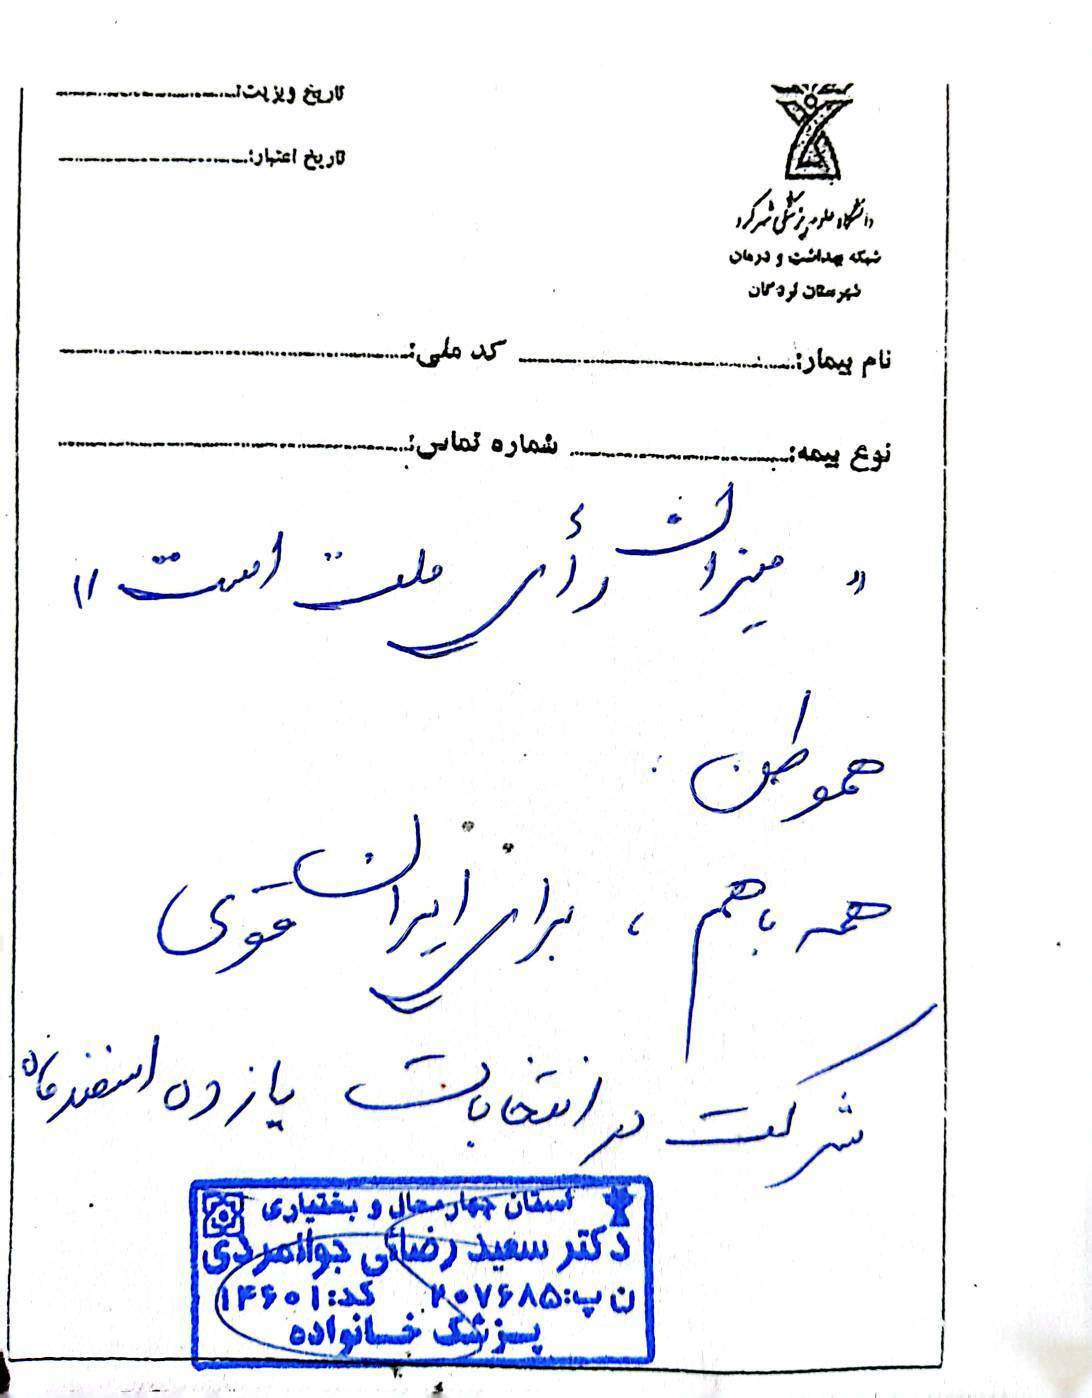 تاریخ ویزیت:
تاریخ اعتبار:
دانشگاه علوم پزشکی شهرکرد
شبکه بهداشت و درمان
شهرستان لردگان
نام بیمار: کد ملی:
نوع بیمه: شماره تماس:
« میزان رأی ملت است »
هموطن:
همه باهم ، برای ایران قوی
شرکت در انتخابات یازده اسفندماه
استان چهارمحال و بختیاری
دکتر سعید رضائی جوانمردی
ن پ: ۲۰۷۶۸۵ کد: ۱۴۶۰۱
پزشک خانواده